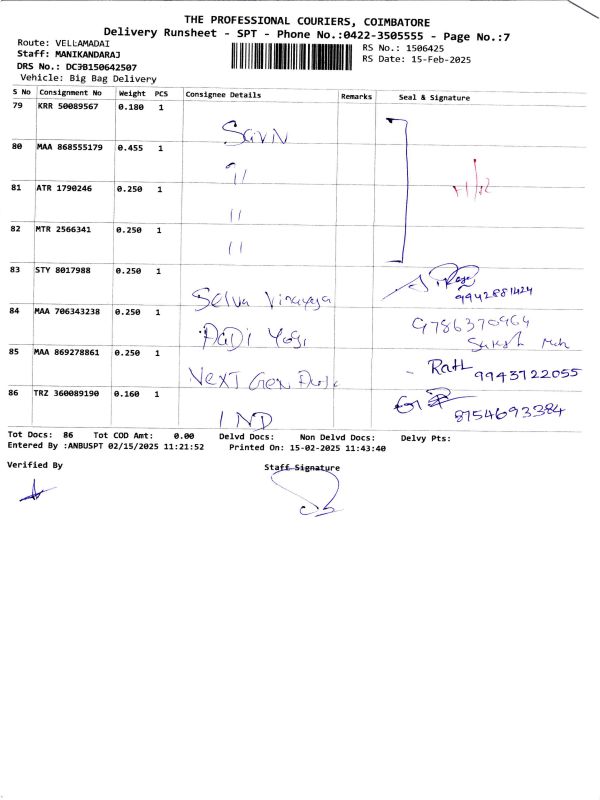 THE PROFESSIONAL COURIERS, COIMBATORE
Delivery Runsheet - SPT - Phone No.:0422-3505555 - Page No.:7
Route: VELLAMADAI
RS No.: 1506425
Staff: MANIKANDARAJ
RS Date: 15-Feb-2025
DRS No.: DC3B150642507
Vehicle: Big Bag Delivery
S No Consignment No Weight PCS Consignee Details Remarks Seal & Signature
79 KRR 50089567 0.180 1
80 MAA 868555179 0.455 1
81 ATR 1790246 0.250 1
"
82 MTR 2566341 0.250 1
"
83 STY 8017988 0.250 1
Selva Vinayaga 9942881424
84 MAA 706343238 0.250 1 9786370964
PaDi Yogi
85 MAA 869278861 0.250 1
NexT Gen 9943722055
86 TRZ 360089190 0.160 1
IND 8754693384
Tot Docs: 86 Tot COD Amt: 0.00 Delvd Docs: Non Delvd Docs: Delvy Pts:
Entered By :ANBUSPT 02/15/2025 11:21:52 Printed On: 15-02-2025 11:43:40
Verified By Staff Signature